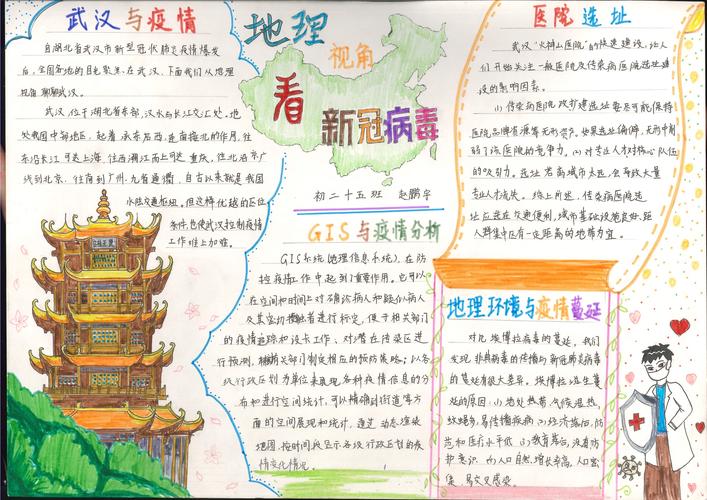 武汉与疫情
自湖北省武汉市新型冠状肺炎疫情爆发
后，全国各地的目光聚集在武汉，下面我们从地理
视角聊聊武汉。
武汉位于湖北省东部，汉水与长江交汇处。地
处我国中部地区，起着承东启西、连南接北的作用，往
东沿长江可达上海，往西溯江而上可达重庆，往北沿京广
线到北京，往南到广州，九省通衢，自古以来就是我国
水陆交通枢纽。但这样优越的区位
条件，也使武汉控制疫情
工作难上加难。
地理
视角
看
新冠病毒
初二十五班 赵鹏宇
GIS与疫情分析
GIS系统（地理信息系统），在防
控疫情工作中起到了重要作用。它可以
在空间和时间上对确诊病人和疑似病人
及其密切接触者进行标定，便于相关部门
的疫情追踪和流长工作，对潜在传染区进
行预测，辅助关部门制定相应的预防策略；以各
级行政区划为单位来展现各种疫情信息的分
布和进行空间统计，可以精确到街道等方
面的空间展现和统计，通过动态渲染
地图，按时间段显示各级行政区划的疫
情变化情况。
医院选址
武汉“火神山医院”的快速建设，让人
们开始关注一般医院及传染病医院选址建
设的影响因素。
(1)传染病医院改扩建选址要尽可能保持
医院品牌资源等无形资产。如果选址偏僻，无形中削
弱了该医院的竞争力。(2)对专业人才对核心队伍
的吸引力。选址若离城市太远，会导致大量
专业人才流失。综上所述，传染病医院选
址应选在交通便利，城市基础设施良好，距
人群集中区有一定距离的地带为宜。
地理环境与疫情蔓延
对比埃博拉病毒的蔓延，我们
发现非典病毒的传播与新冠肺炎病毒
的蔓延有很大差异。埃博拉发生蔓
延的原因：(1)地处热带，气候湿热，
蚊蝇多，易传播疾病 (2)经济落后，防
范和医疗水平低 (3)教育落后，没有防
护意识 (4)人口自然增长率高，人口密
集，易交叉感染